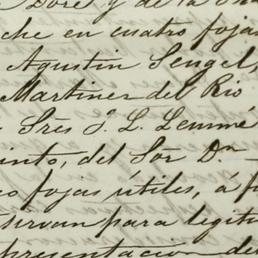 Doré y de la
che en cuatro fojas
Agustin Sengel,
Martinez del Rio
Sres J. L. Lemmé
into, del Sor Dn
co fojas útiles, á f
sirvan para legiti
presentacion de